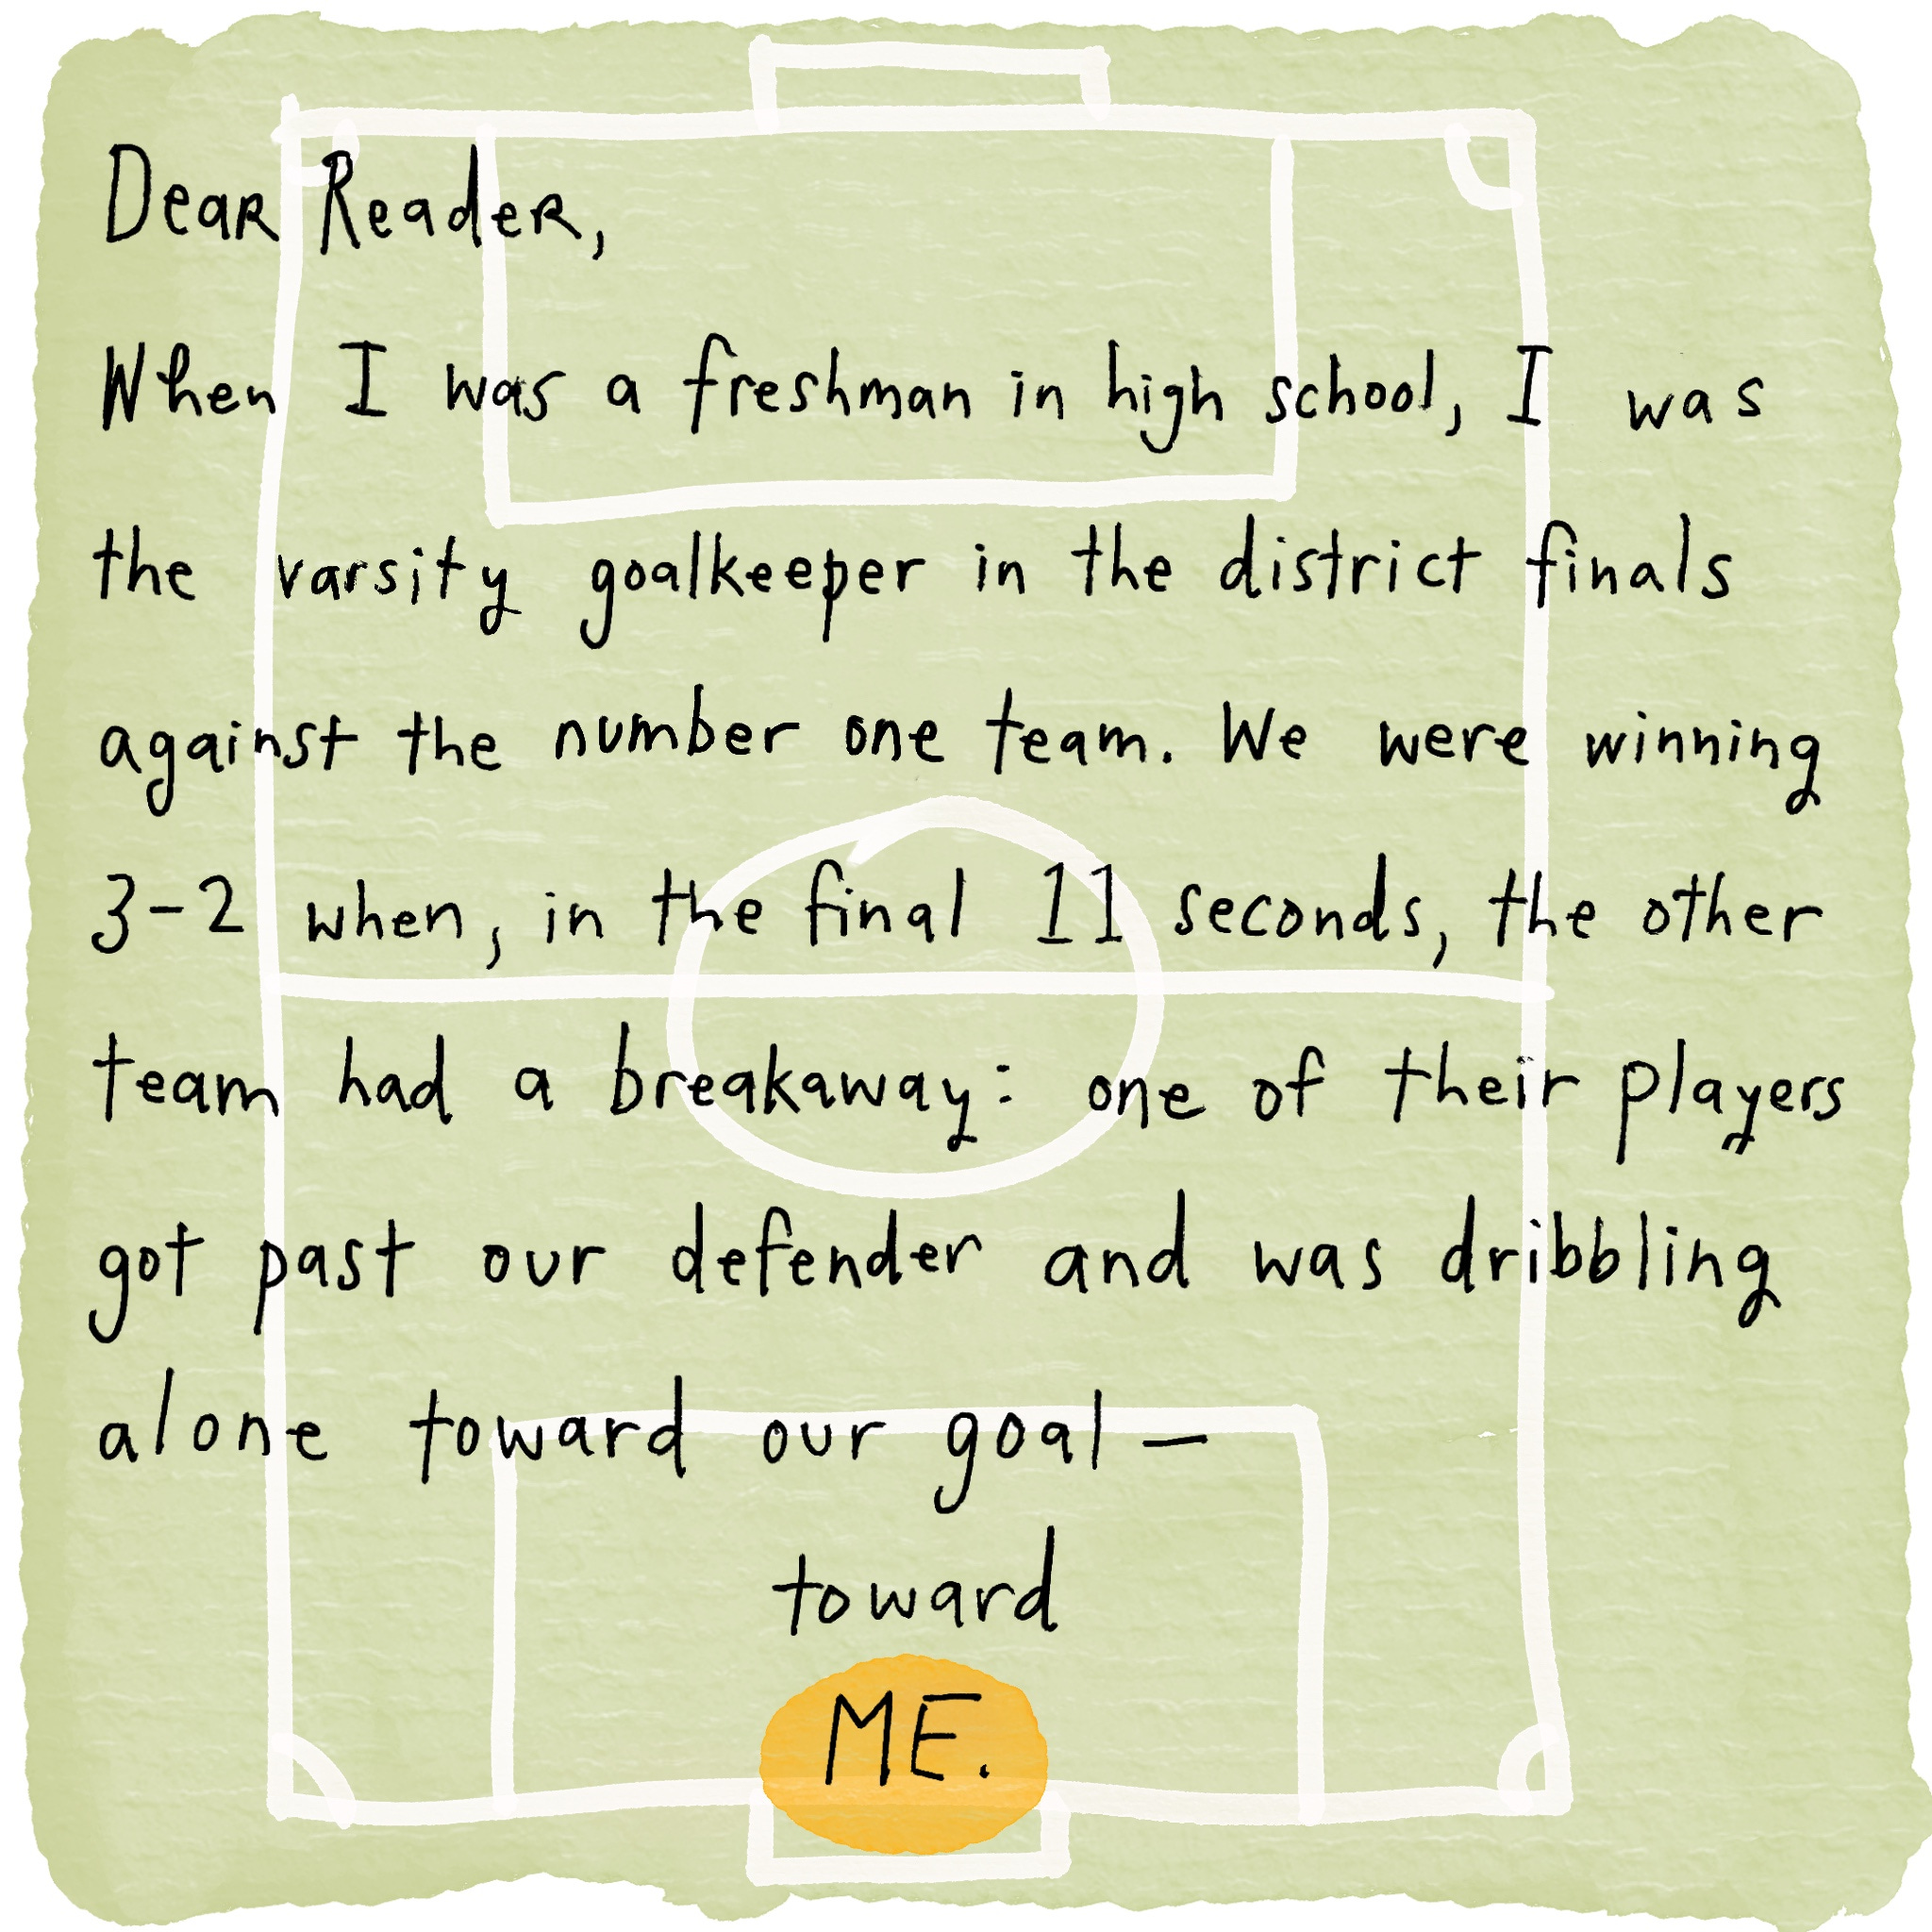 Dear Reader,
When I was a freshman in high school, I was
the varsity goalkeeper in the district finals
against the number one team. We were winning
3-2 when, in the final 11 seconds, the other
team had a breakaway: one of their players
got past our defender and was dribbling
alone toward our goal—
toward
ME.